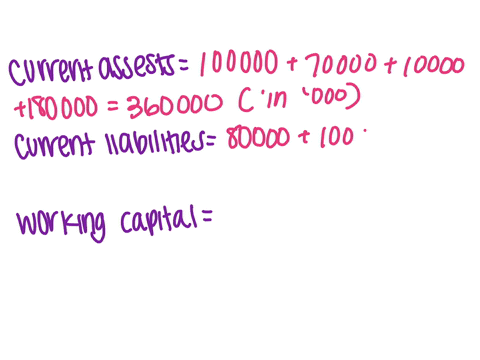 current assests= 100000 + 70000 + 10000
+180000 = 360000 ( 'in '000)
current liabilities= 80000 + 100
working capital=